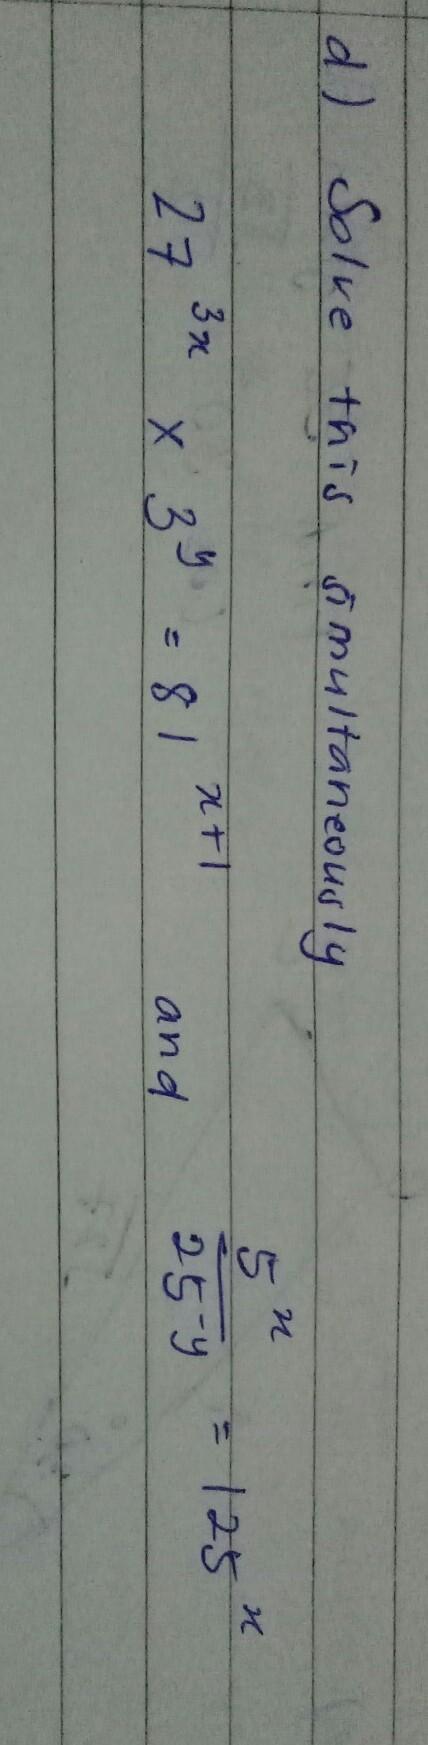 d) Solve this simultaneously
27^{3x} × 3^{y} = 81^{x+1} and \frac{5^{x}}{25^{-y}} = 125^{x}